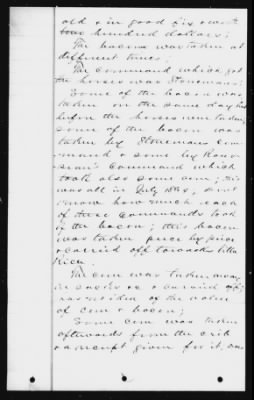 old & in good fix & worth
four hundred dollars;
The bacon was taken at
different times;
The command which got
the horses was Stonemans;
Some of the bacon was
taken on the same day but
before the horses were taken;
some of the bacon was
taken by Stonemans com-
mand & some by
command which
took also some corn;
was all in July 1863, don't
know how much each
of these commands took
of the bacon; this bacon
was taken piece by piece
& carried off towards
The corn was taken away
in sacks & carried off;
has no idea of the value
of corn & bacon;
Some corn was taken
afterwards from the crib
& a receipt given for it,